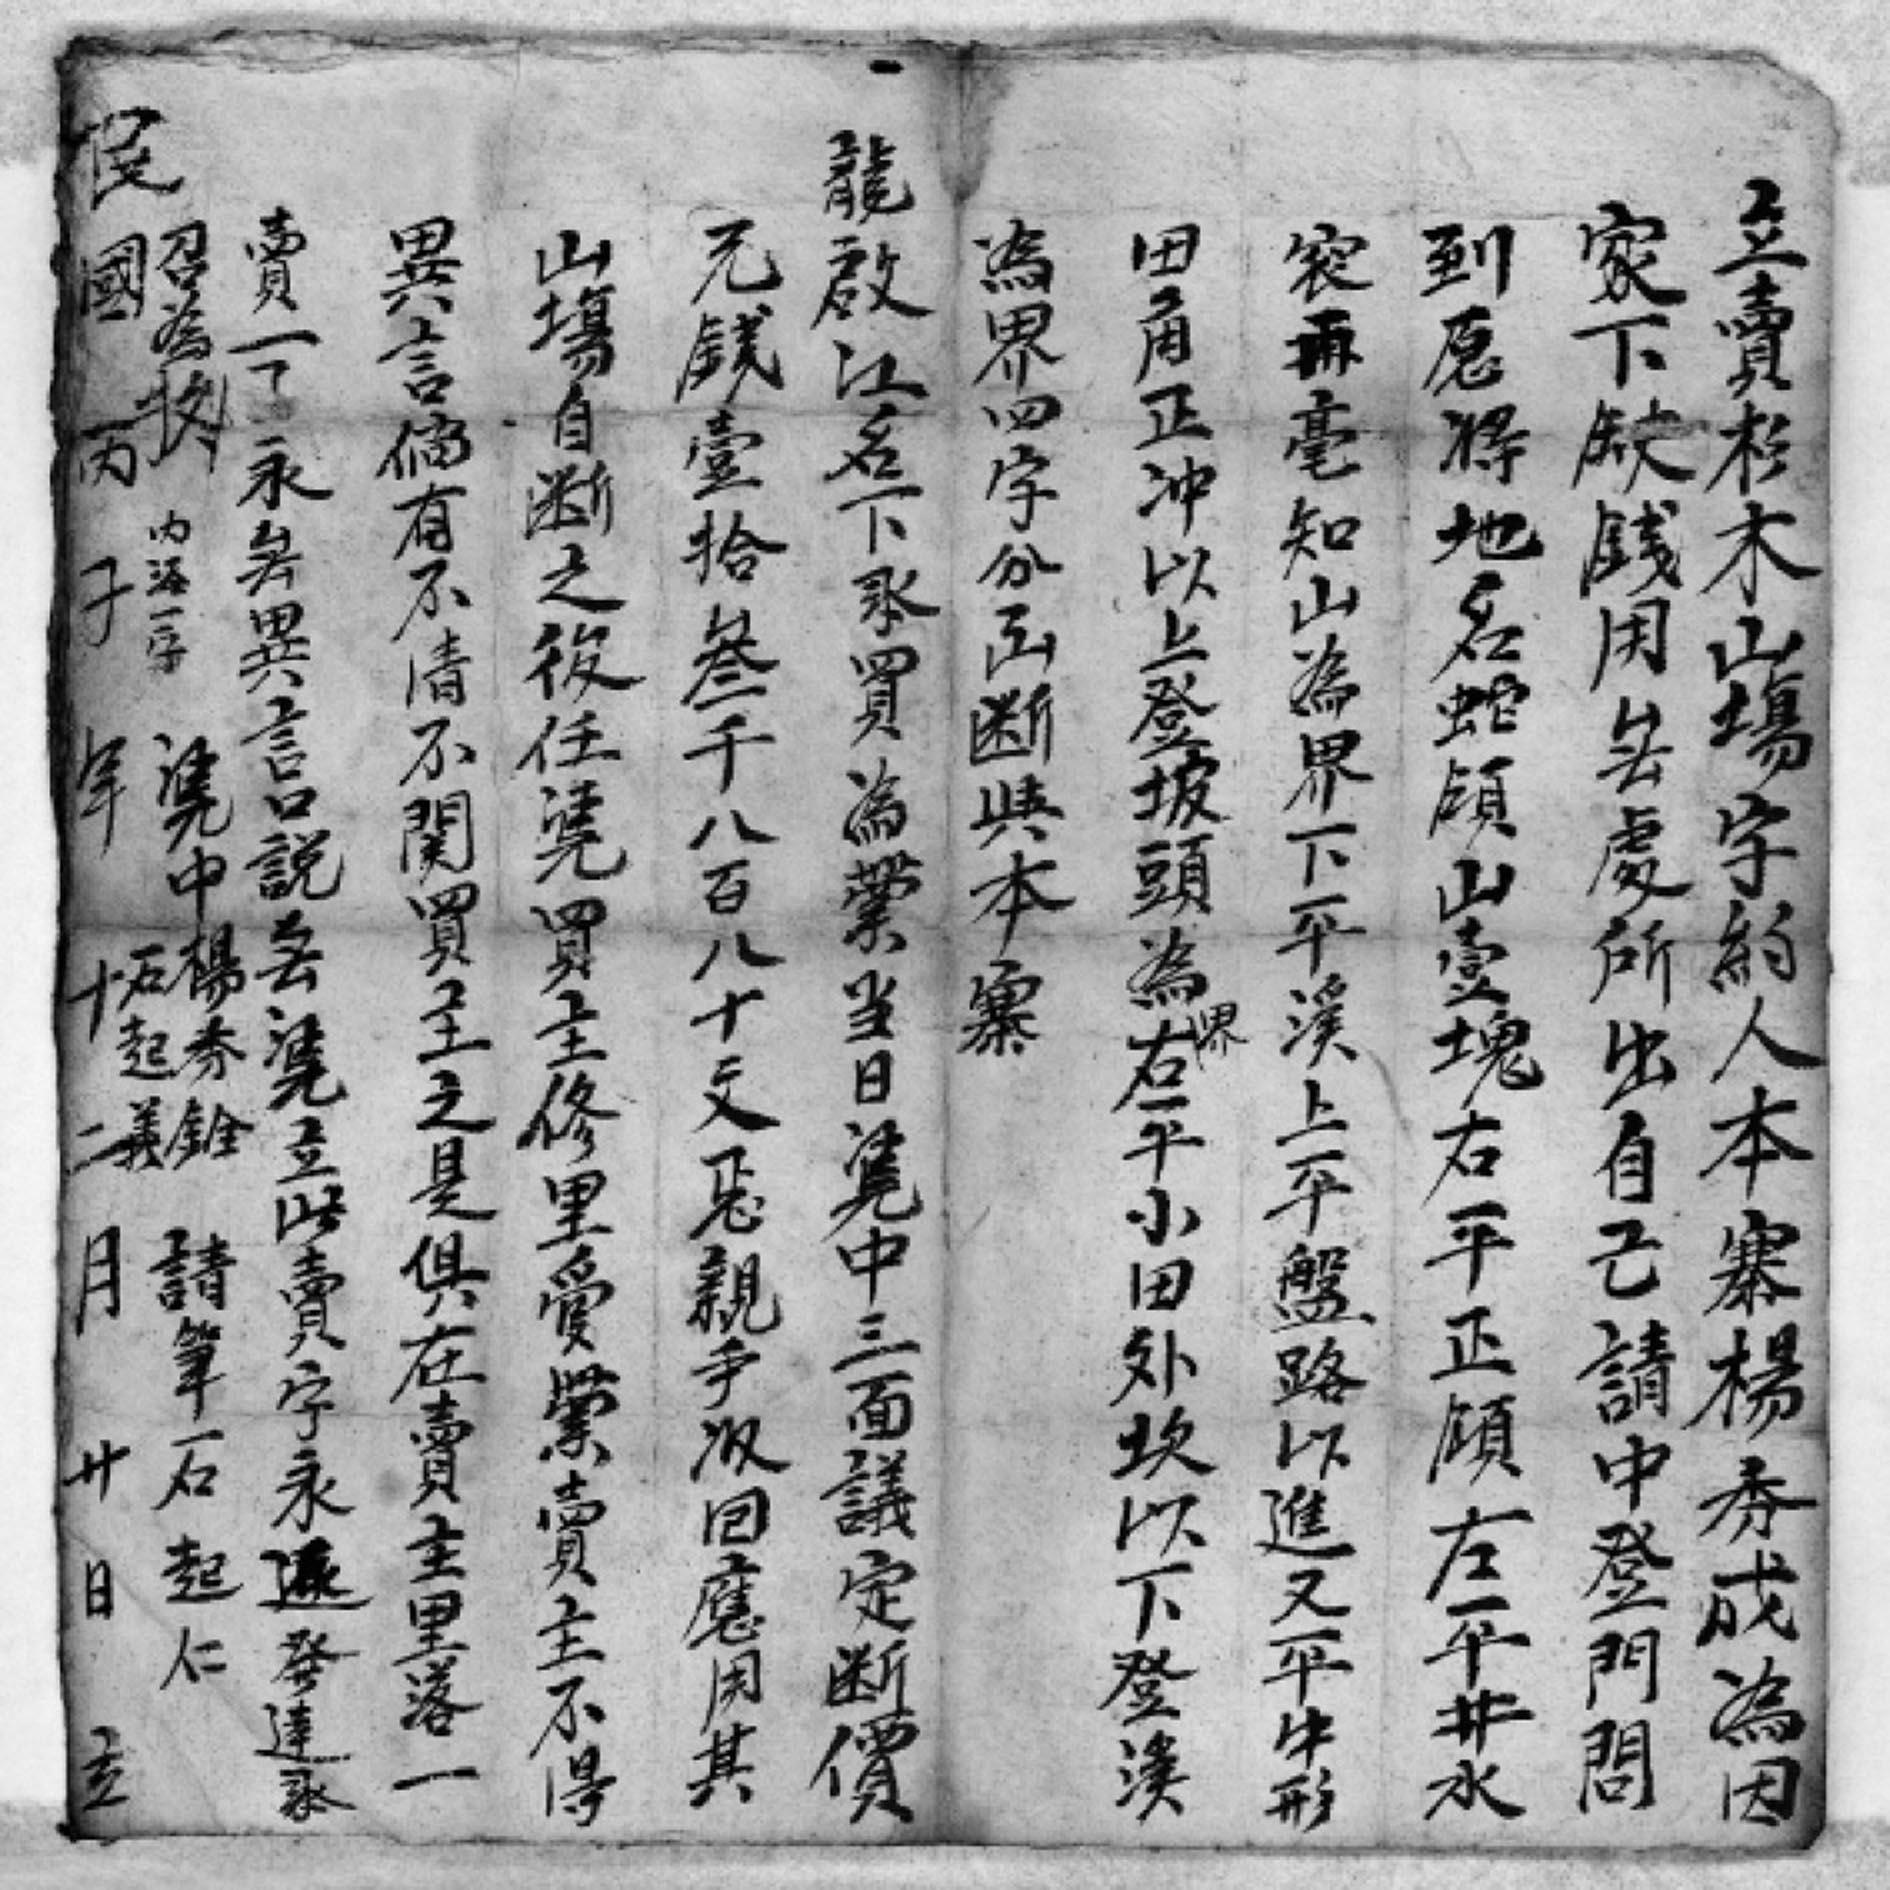 立賣杉木山塲字約人本寨楊秀成為因
家下缺錢用無處所出自己請中登門問
到愿將地名蛇頭山壹塊右平正頭左平井水
衮毫知山為界下平溪上平盤路以進又平牛形
田角正冲以上登坡頭為界右平小田外坎以下登溪
為界四字分出断與本寨
龍啟江名下承買為業当日凴中三面議定断價
元錢壹拾叁千八百八十文整親手收回應用其
山塲自断之後任凴買主修里受業賣主不得
異言倘有不清不関買主之是俱在賣主里落一
賣一了永無異言口説無凴立此賣字永遠發達承
召為拠
內添一字
凴中楊秀銓
石起義
請筆石起仁
民國丙子年十二月廿日立